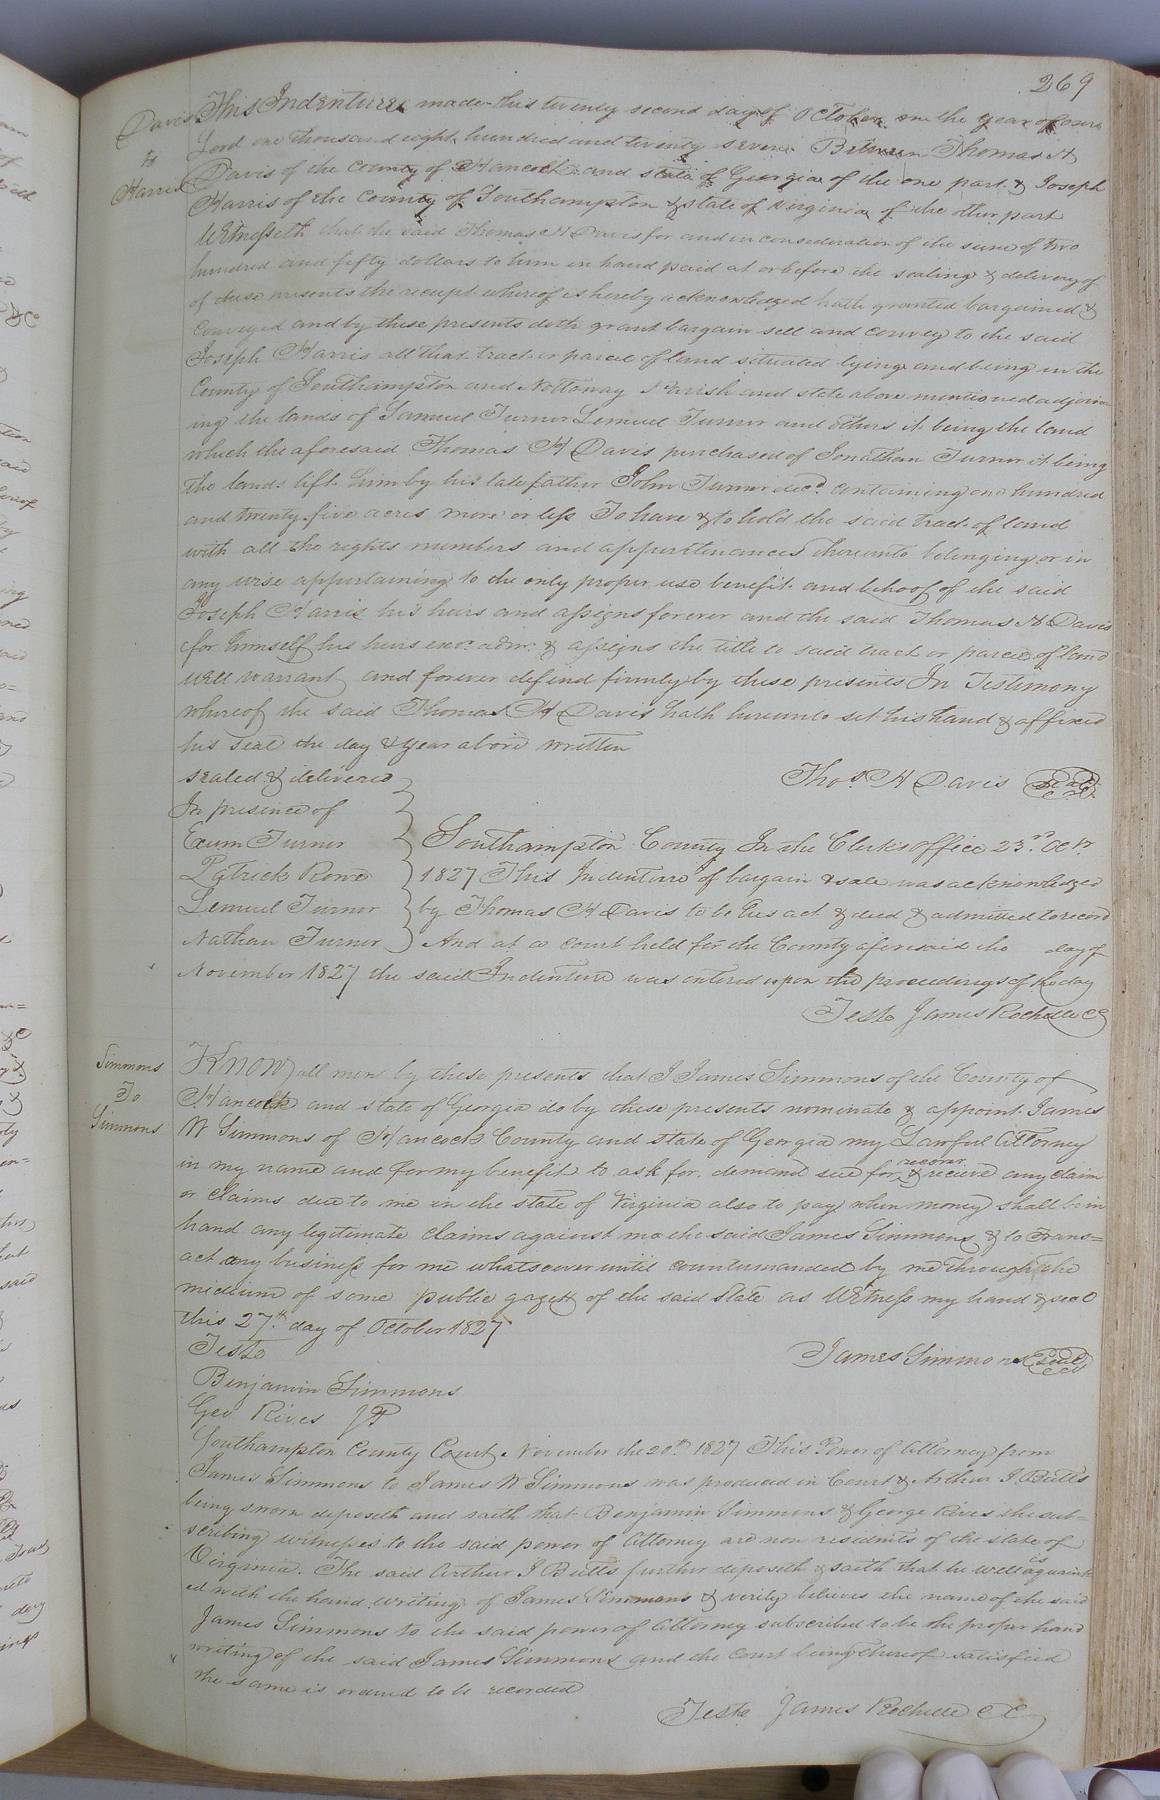 269
Davis
to
Harris
This Indenture made this twenty second day of October in the year of our
Lord one thousand eight hundred and twenty seven Between Thomas H
Davis of the County of Hancock and state of Georgia of the one part & Joseph
Harris of the County of Southampton & state of Virginia of the other part
Witnesseth that the said Thomas H Davis for and in consideration of the sum of two
hundred and fifty dollars to him in hand paid at or before the sealing & delivery of
of these presents the receipt whereof is hereby acknowledged hath granted bargained &
Conveyed and by these presents doth grant bargain sell and convey to the said
Joseph Harris all that tract or parcel of land situated lying and being in the
County of Southampton and Nottoway Parish and state above mentioned adjoin
ing the lands of Samuel Turner Lemuel Turner and others it being the land
which the aforesaid Thomas H Davis purchased of Jonathan Turner it being
the lands left him by his late father John Turner decd. containing one hundred
and twenty five acres more or less To have & to hold the said tract of land
with all the rights members and appurtenances thereunto belonging or in
any wise appertaining to the only proper use benefit and behoof of the said
Joseph Harris his heirs and assigns forever and the said Thomas H Davis
for himself his heirs exor. admr. & assigns the title to said tract or parcel of land
will warrant and forever defend firmly by these presents In Testimony
whereof the said Thomas H Davis hath hereunto set his hand & affixed
his seal the day & year above written
sealed & delivered
Thos. H Davis Seal
In presence of
Exum Turner
Patrick Rowe
Lemuel Turner
Nathan Turner
Southampton County In the Clerks office 23rd Octr.
1827 This Indenture of bargain & sale was acknowledged
by Thomas H Davis to be his act & deed & admitted to record
And at a court held for the County aforesaid the day of
November 1827 the said Indenture was entered upon the proceedings of the day
Teste James Rochelle CC
Simmons
To
Simmons
KNOW all men by these presents that I James Simmons of the County of
Hancock and state of Georgia do by these presents nominate & appoint James
W Simmons of Hancock County and state of Georgia my Lawful Attorney
in my name and for my benefit to ask for demand sue for recover & recieve any claim
or claims due to me in the state of Virginia also to pay when money shall be in
hand any legitimate claims against me the said James Simmons & to Trans=
act any business for me whatsoever until countermanded by me through the
midium of some public gazett of the said State as Witness my hand & seal
this 27th. day of October 1827
Teste
James Simmons Seal
Benjamin Simmons
Geo Rives JP
Southampton County Court November the 20th. 1827 This Power of Attorney from
James Simmons to James W Simmons was produced in Court & Arthur I Butts
being sworn deposeth and saith that Benjamin Simmons & George Rives the sub-
scribing witnesses to the said power of Attorney are non residents of the state of
Virginia. The said Arthur I Butts further deposeth & saith that he is well aquaint
ed with the hand writing of James Simmons & verily believes the name of the said
James Simmons to the said power of Attorney subscribed to be the proper hand
writing of the said James Simmons and the Court being thereof satisfied
the same is ordered to be recorded
Teste James Rochelle CC